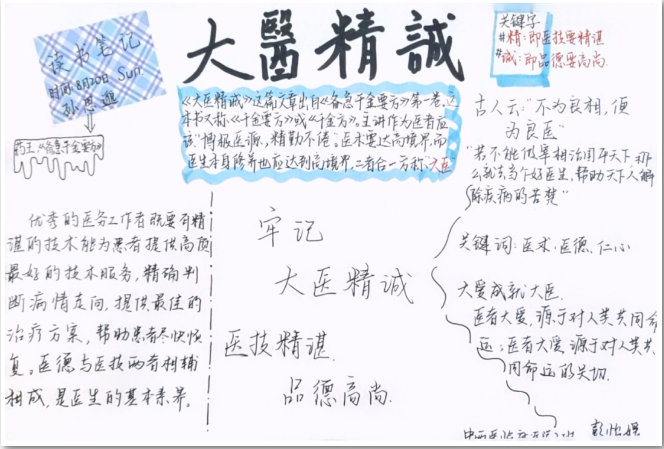 读书笔记
时间:8月20日.Sun.
孙思邈
药王,《备急千金要方》
大醫精誠
《大医精诚》这篇文章出自《备急千金要方》第一卷,这
本书又称《千金要方》或《千金方》。主讲作为医者应
该"博极医源,精勤不倦。医术要达高境界,而
医生本身修养也应达到高境界,二者合一方称:大医
关键字
#精:即医技要精湛
#诚:即品德要高尚.
古人云:"不为良相,便
为良医"
"若不能做宰相治国平天下,那
么就去当个好医生,帮助天下人解
除疾病的苦楚"
关键词:医术.医德.仁心
大爱成就大医.
医者大爱,源于对人类共同命
运;医者大爱,源于对人类共
同命运的关切.
优秀的医务工作者既要有精
谌的技术能为患者提供高质
最好的技术服务,精确判
断病情走向,提供最佳的
治疗方案,帮助患者尽快恢
复。医德与医技两者相辅
相成,是医生的基本素养。
牢记
大医精诚
医技精谌.
品德高尚.